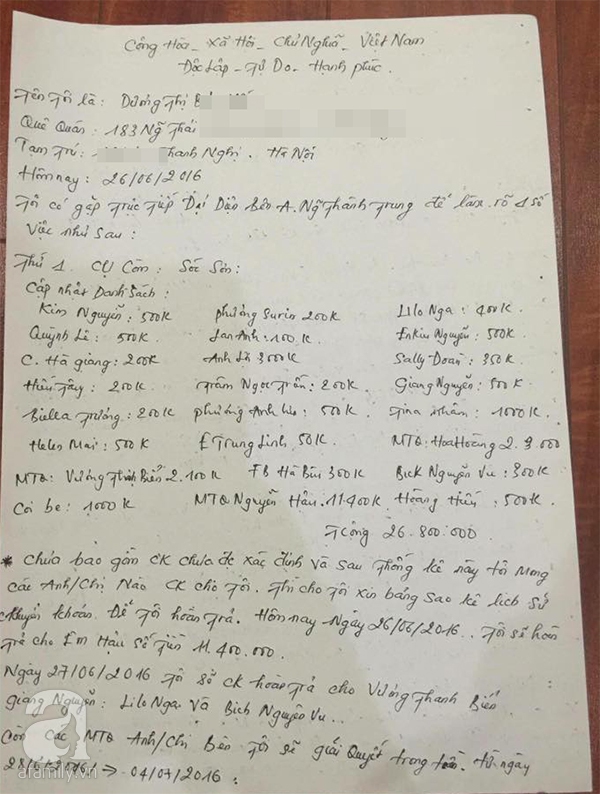 Cộng Hòa - Xã Hội - Chủ Nghĩa - Việt Nam
Độc Lập - Tự Do - Hạnh phúc.
Tên Tôi là: Dương Thị
Quê Quán: 183 Ng Thái
Tạm Trú: Thanh Nghị. Hà Nội
Hôm nay: 26/06/2016
Tôi có gặp Trực Tiếp Đại Diện Bên A. Ng Thành Trung để làm rõ 1 số
Việc như sau:
Thứ 1. Cụ Còm: Sóc Sơn:
Cập nhật Danh Sách:
Kim Nguyễn: 500K phương Surin 200K Lilo Nga: 400K
Quỳnh Lê: 500K Lan Anh: 100K. Enkiu Nguyễn: 500K
C. Hà giang: 200K Anh 3000K Sally Doan: 350K
Hiền Tây: 200K Trâm Ngọc Trần: 200K Giang Nguyễn: 500K
Biella Trương: 200K phương Anh 500K Tina nhâm: 1000K.
Helen Mai: 500K E Trung Linh 50K. MTQ: Hoa Hoàng 2. 3.000
MTQ: Vương Thanh Biển 2.100K FB Hà Bùi 300K Bick Nguyễn Vu: 300K
Cói be: 1000K MTQ Nguyễn Hậu. 11.400K Hoàng Hiền: 500K
T Cộng 26.800.000
* Chưa bao gồm CK chưa đc xác định Và sau Thống kê này tôi mong
Các Anh/Chị Nào CK cho Tôi. Thì cho Tôi xin bảng sao kê lịch sử
chuyển khoản. Để Tôi hoàn Trả. Hôm nay Ngày 26/06/2016.. Tôi sẽ hoàn
Trả cho Em Hậu số Tiền 11.400.000.
Ngày 27/06/2016 Tôi sẽ CK hoàn Trả cho Vương Thanh Biển
giang Nguyễn: Lilo Nga Và Bích Nguyễn Vu...
Còn Các MTQ Anh/Chị Bên Tôi sẽ giải Quyết trong từ ngày
28/6/2016/ → 04/07/2016.
afamily.vn